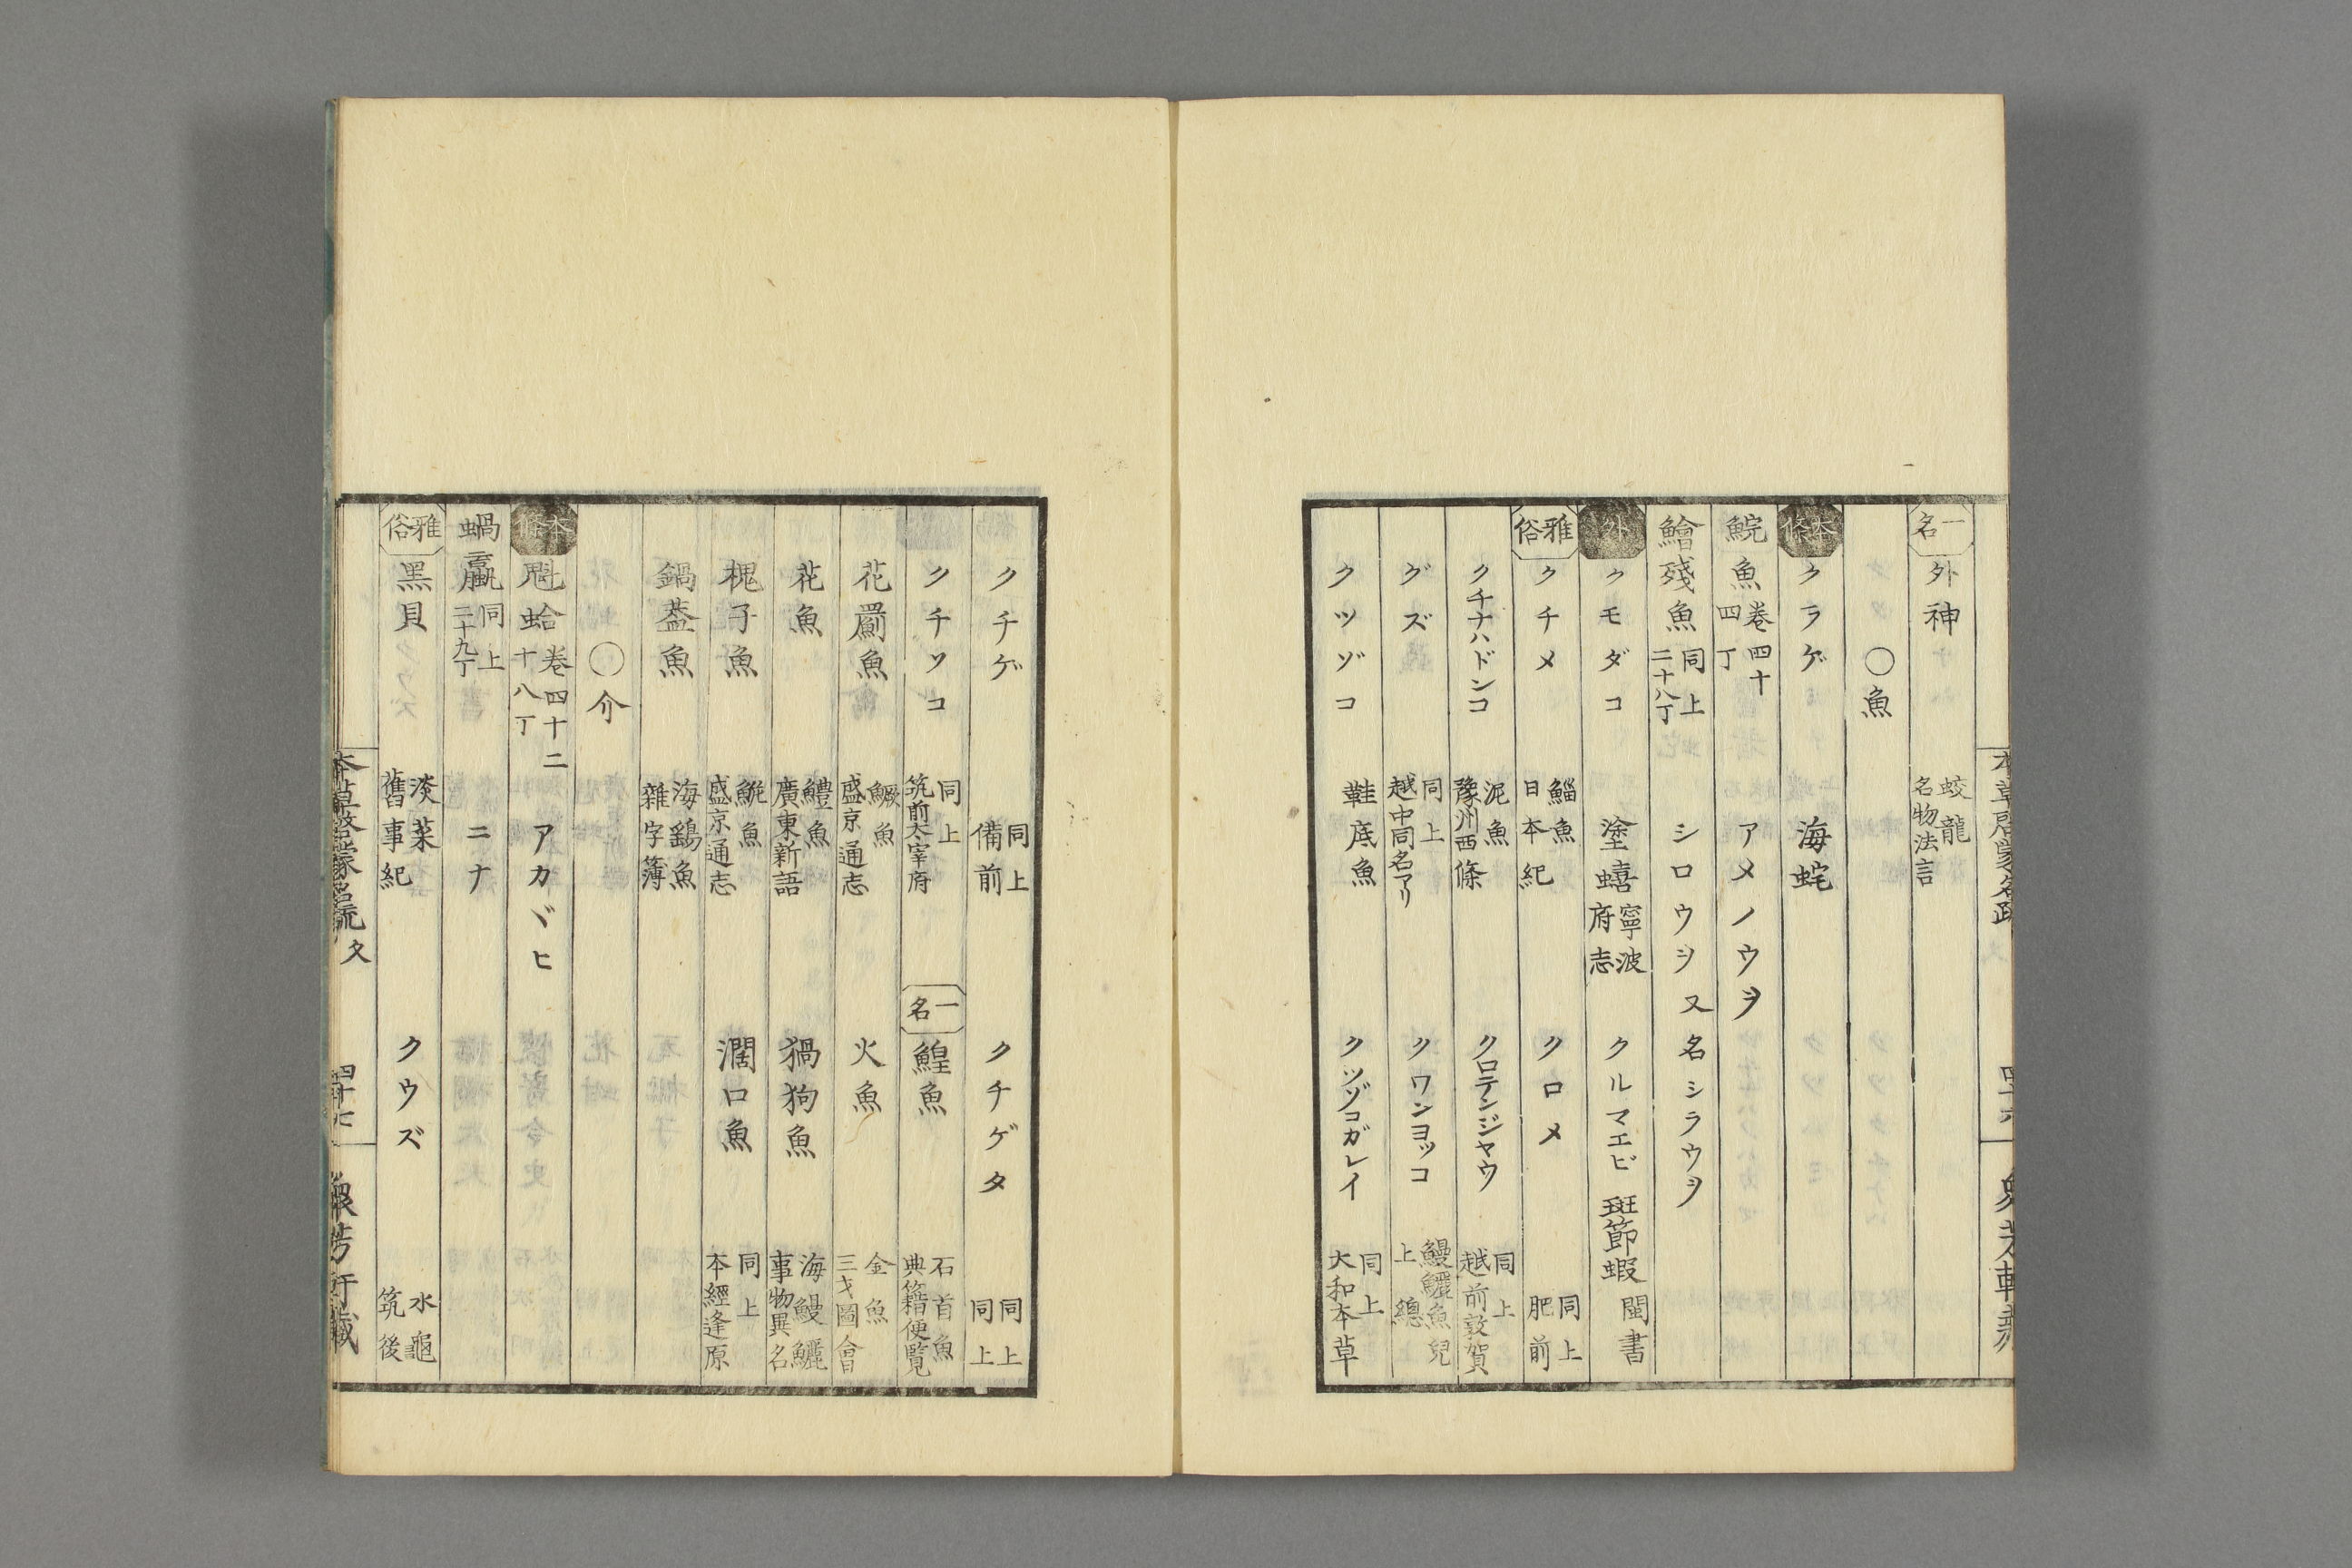 一名 外神 蛟龍 名物法言
〇魚
本條 クラゲ 海蛇
鯇魚 卷四十 四丁 アメノウヲ
鱠殘魚 同上 二十八丁 シロウヲ 又名シラウヲ
外 クモダコ 塗蟢 寧波府志 クルマエビ 斑節蝦 閩書
雅俗 クチメ 鯔魚 日本紀 クロメ 同上 肥前
クチナハドンコ 泥魚 豫州西條 クロテンジヤウ 同上 越前敦賀
グズ 同上 越中同名アリ クワンヨツコ 鰻鱺魚兒 上總
クツゾコ 鞋底魚 クツゾコガレイ 同上 大和本草
クチゲ 同上 備前 クチゲタ 同上 同上
クチソコ 同上 筑前太宰府 一名 鰉魚 石首魚 典籍便覧
花罽魚 鱖魚 盛京通志 火魚 金魚 三才圖會
花魚 鱧魚 廣東新語 猧狗魚 海鰻鱺 事物異名
槐子魚 鮠魚 盛京通志 濶口魚 同上 本經逢原
鍋葢魚 海鷂魚 雜字簿
〇介
本條 魁蛤 卷四十二 十八丁 アカヾヒ
蝸蠃 同上 二十九丁 ニナ
雅俗 黒貝 淡菜 舊事紀 クウズ 水龜 筑後
本草啓蒙名疏 ク 四十七 衆芳軒藏